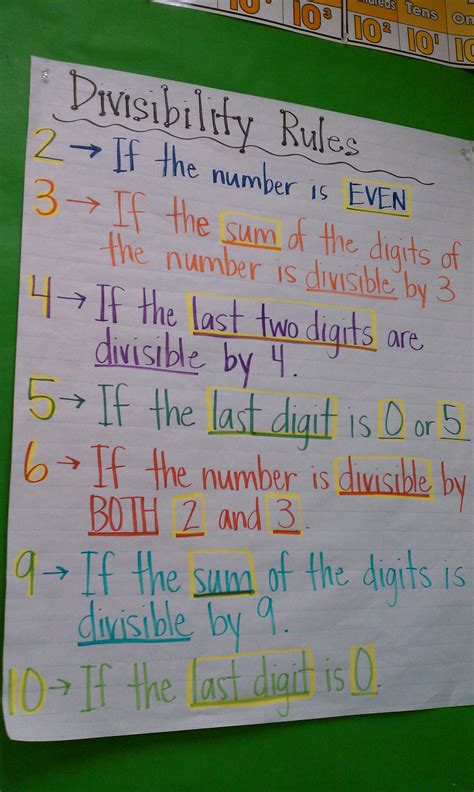 Tens
10³
10² 10¹ 10
Divisibility Rules
2 → If the number is EVEN
3 → If the sum of the digits of
the number is divisible by 3
4 → If the last two digits are
divisible by 4.
5 → If the last digit is 0 or 5
6 → If the number is divisible by
BOTH 2 and 3.
9 → If the sum of the digits is
divisible by 9.
10 → If the last digit is 0.